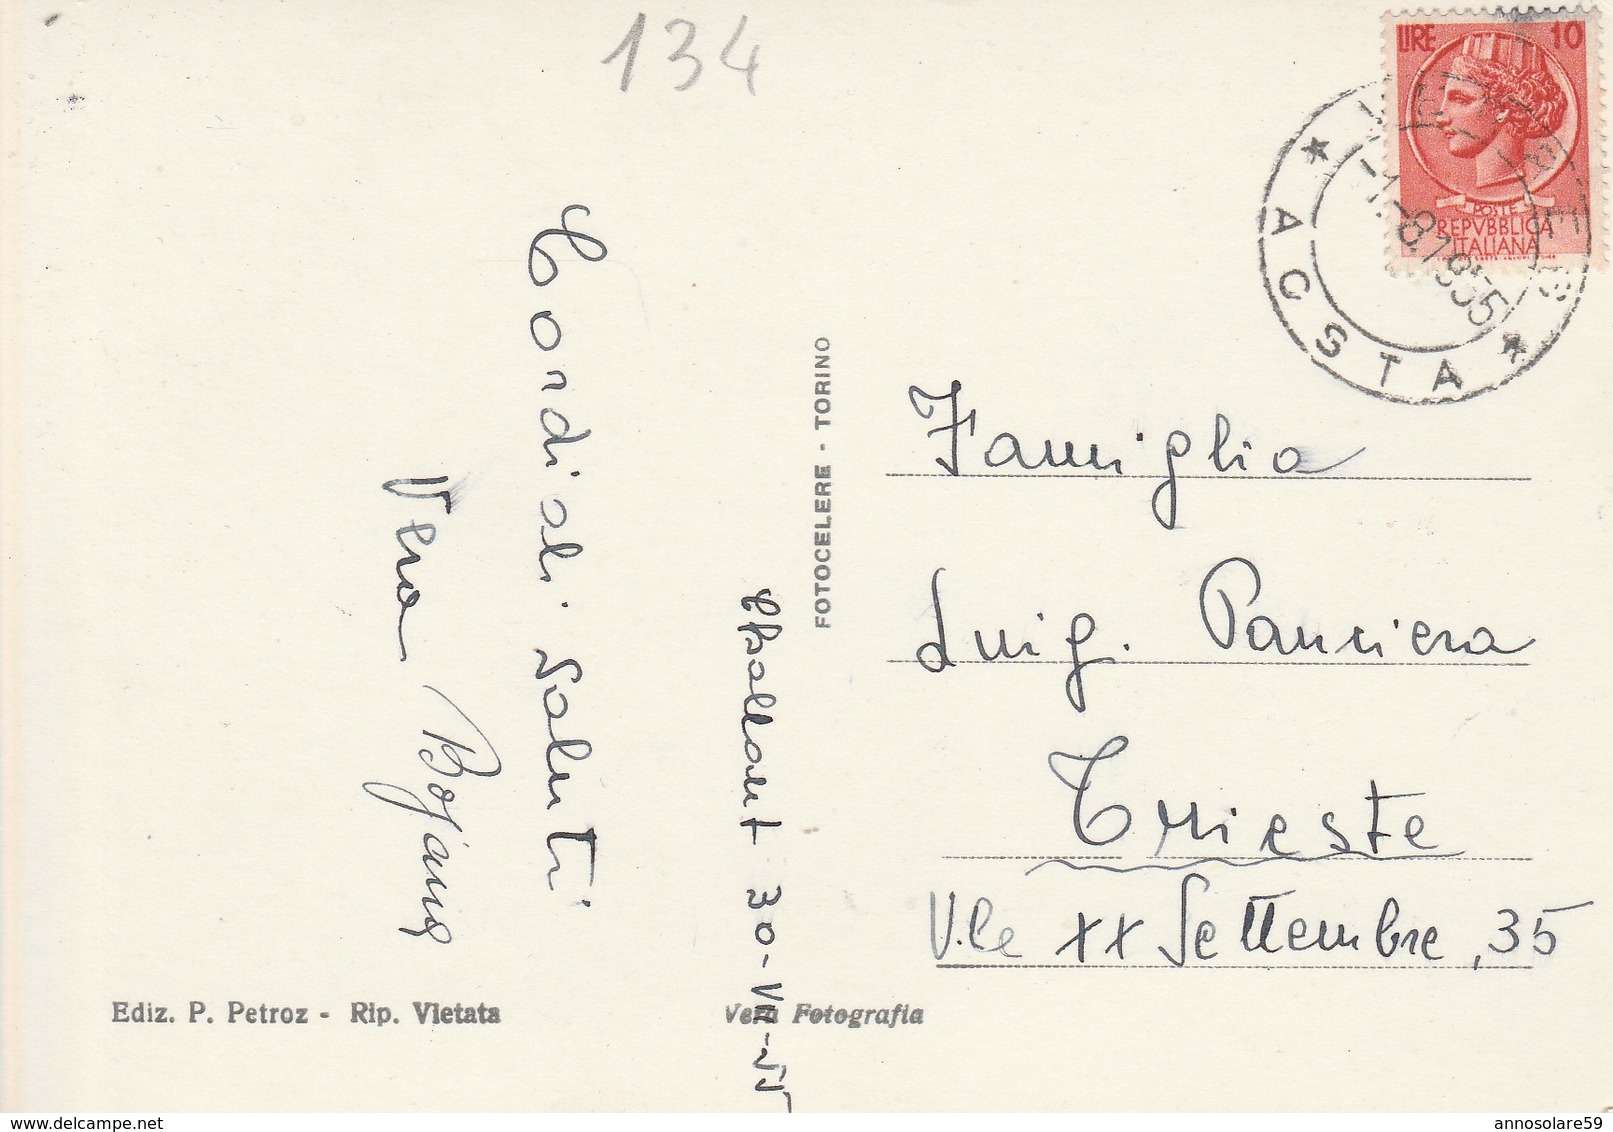 134
LIRE 10
POSTE
REPVBBLICA
ITALIANA
-1.-8.1955
AOSTA
Cordiali Saluti
Vera
FOTOCELERE - TORINO
30-VII-55
Famiglia
Luig. Panciera
Trieste
V.le XX Settembre, 35
Ediz. P. Petroz - Rip. Vietata
Vera Fotografia
www.delcampe.net
annosolare59